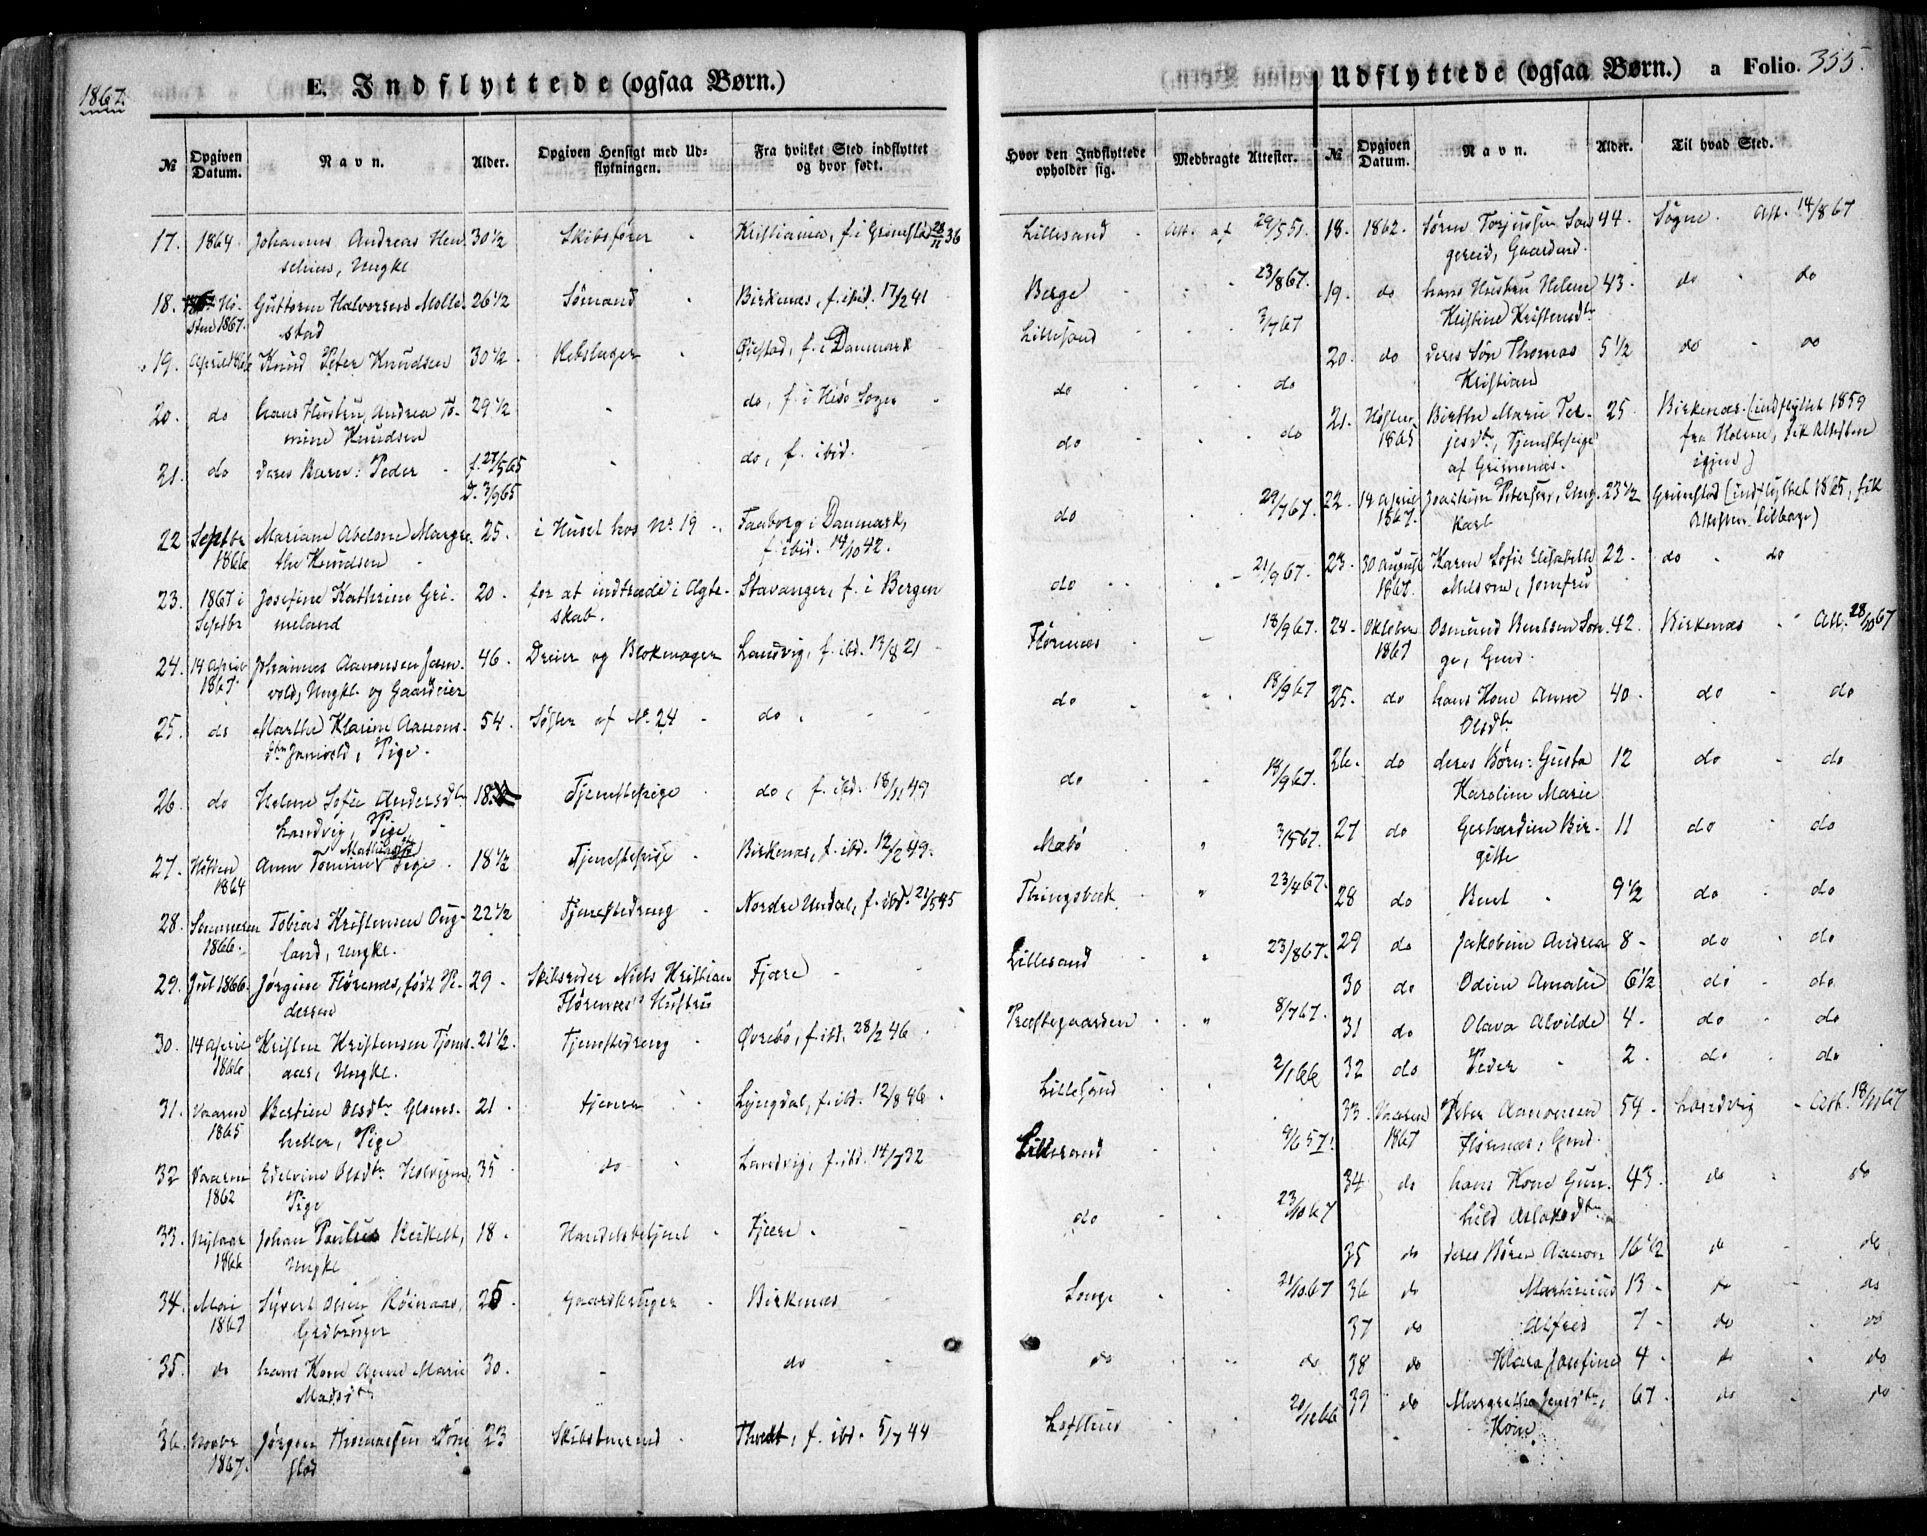 1867.
E. Indflyttede (ogsaa Børn.)
Udflyttede (ogsaa Børn.) a Folio. 355.
№ Opgiven Datum. Navn. Alder. Opgiven Hensigt med Udflytningen. Fra hvilket Sted indflyttet og hvor født.
Hvor den Indflyttede opholder sig. Medbragte Attester.
№ Opgiven Datum. Navn. Alder. Til hvad Sted.
17. 1864 Johannes Andreas Hen 30 1/2 Skibsfører Kristiania, f. i Grimstad 28/11 36 Lillesand Att. af 29/5 51.
schien, Ungkl
18. Hø- Guttorm Halvorsen Molle- 26 1/2 Sømand Birkenæs, f. ibid. 17/2 41 Berge 23/8 67.
sten 1867. stad
19. April 1866 Knud Peter Knudsen 30 1/2 Rebslager Øiestad, f. i Danmark Lillesand 3/7 67
20. do hans Hustru, Andrea To- 29 1/2 do, f. i Hisø Sogn do do
mine Knudsen
21. do deres Barn: Peder f. 27/5 65 do, f. ibid. do do
D. 3/9 65
22 Septbr Mariane Abelone Margre 25. i Huset hos No 19 Faaborg i Danmark, do 29/7 67.
1866 the Knudsen f. ibid. 14/10 42.
23. 1867 i Josefine Kathrine Gri- 20. for at indtræde i Ægte- Stavanger, f. i Bergen do 21/9 67.
Septbr meland skab.
24. 14 April Johannes Aanonsen Jam- 46. Dreier og Blokmager Landvig, f. ibd. 13/8 21 Flørenæs 18/9 67.
1867. vold, Ungkl. og Gaardeier
25. do Marthe Klarine Aanons- 54. Søster af No. 24 do do 18/9 67
dtr Jamvold, Pige.
26. do Helene Sofie Andersdtr 18. Tjenestepige do, f. ibd. 18/11 49 do 18/9 67.
Landvig, Pige
27. Høsten Anne Tomine Pige 18 1/2 Tjenestepige Birkenæs, f. ibd. 12/2 49. Mæbø 3/5 67.
1864
28. Sommeren Tobias Kristensen Aug- 22 1/2 Tjenestedreng Nordre Undal, f. ibd. 21/5 45 Thingsbæk 23/4 67.
1866. land, Ungkl.
29. Jul 1866. Jørgine Flørenæs, født Pe- 29 Skibsreder Niels Kristian Fjære Lillesand 23/8 67.
dersen Flørenæs' Hustru
30. 14 April Kristen Kristensen Tjom- 21 1/2 Tjenestedreng Øvrebø, f. ibd. 28/2 46 Præstegaarden 8/7 67.
1866 aas, Ungkl.
31. Vaaren Bertine Olsdtr 21 tjener Lyngdal, f. ibd. 12/8 46 Lillesand 2/1 66
1865 heller, Pige
32 Vaaren Edelvine Olsdtr 35 do Landvig, f. ibd. 14/7 32 Lillesand 9/6 57.
1862 Pige
33. Nytaar Johan Paulus 18 Handelsbetjent Fjære do 23/10 67
1866 Ungkl
34. Mai Syvert Olsen Røinaas, 25. Gaardbruger Birkenæs Songe 21/10 67
1867 Grdbruger
35. do hans Kone Anne Marie 30. do do do
Madsdtr
36. Novbr Jørgen Thomassen 23 Skibstømmermand Thvedt, f. ibd. 5/7 44 Lofthus 20/12 66
1867.
18. 1862. Søren Torjussen Son 44. Søgne Att. 14/8 67
gereid, Gaardmd.
19. do hans Hustru Helene 43. do do
Kristine Kristensdtr
20. do deres Søn Thomas 5 1/2 do do
Kristian
21. Høsten Birthe Marie Ter- 25. Birkenæs. (indflyttet 1859
1865 jesdtr, Tjenestepige fra Holum, fik Attesten
af Grimenæs. igjen)
22. 14 April Joachim Petersen, Ung- 23 1/2 Grimstad (indflyttet 1865, fik
1867. karl Attesten tilbage)
23. 30 August Karen Sofie Elisabeth 22. do do
1867. Nielsen, Jomfru
24. Oktober Osmund Bentsen Son- 42. Birkenæs Att. 28/10 67
1867 ge, Gmd.
25. do hans Kone Anne 40. do do
Olsdtr
26. do deres Børn: Gusta 12 do do
Karoline Marie
27 do Gerhardine Bir- 11 do do
gitte
28 do Bent 9 1/2 do do
29 do Jakobine Andrea 8 do do
30 do Odine Amalie 6 1/2 do do
31 do Olava Alvilde 4. do do
32 do Peder 2. do do
33. Vaaren Peter Aanonsen 54 Landvig Att. 18/11 67
1867 Flørenæs, Gmd.
34 do hans Kone Gun- 43. do do
hild Aslaksdtr
35 do deres Børn Aanon 16 1/2 do do
36 do Martinius 13 do do
37 do Alfred 7 do do
38 do Klara Josefine 4 do do
39 do Margrethe Jensdtr, 67. do do
Kone